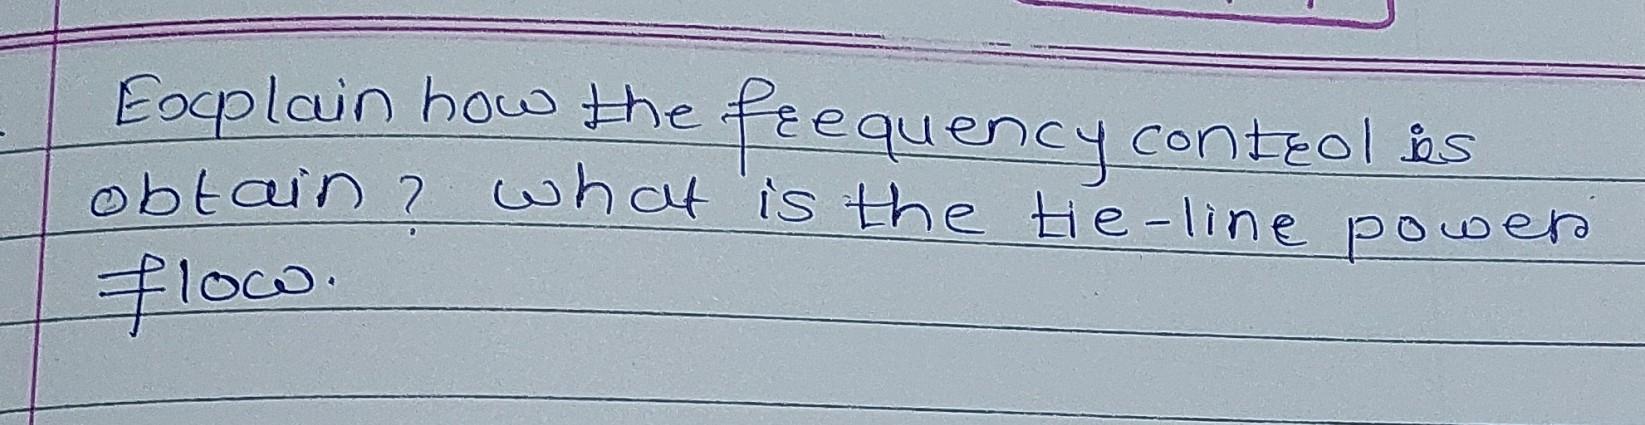 Explain how the frequency control is
obtain? what is the tie-line power
flow.